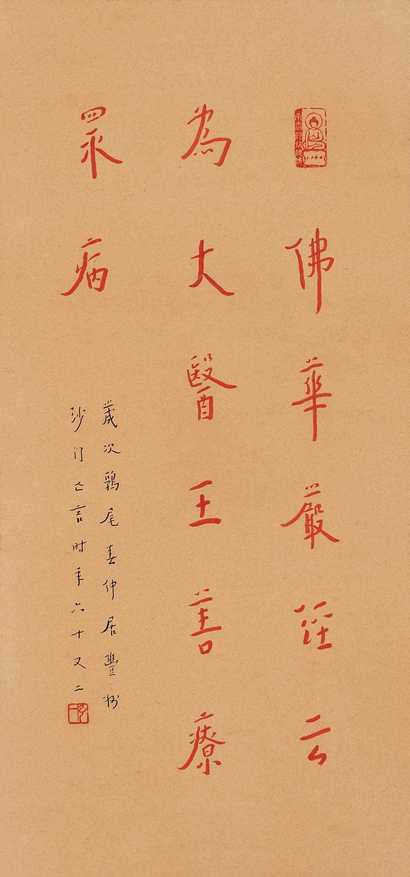 佛華嚴經云
為大醫王善療
眾病
歲次鶉尾春仲居豐州
沙門亡言时年六十又二